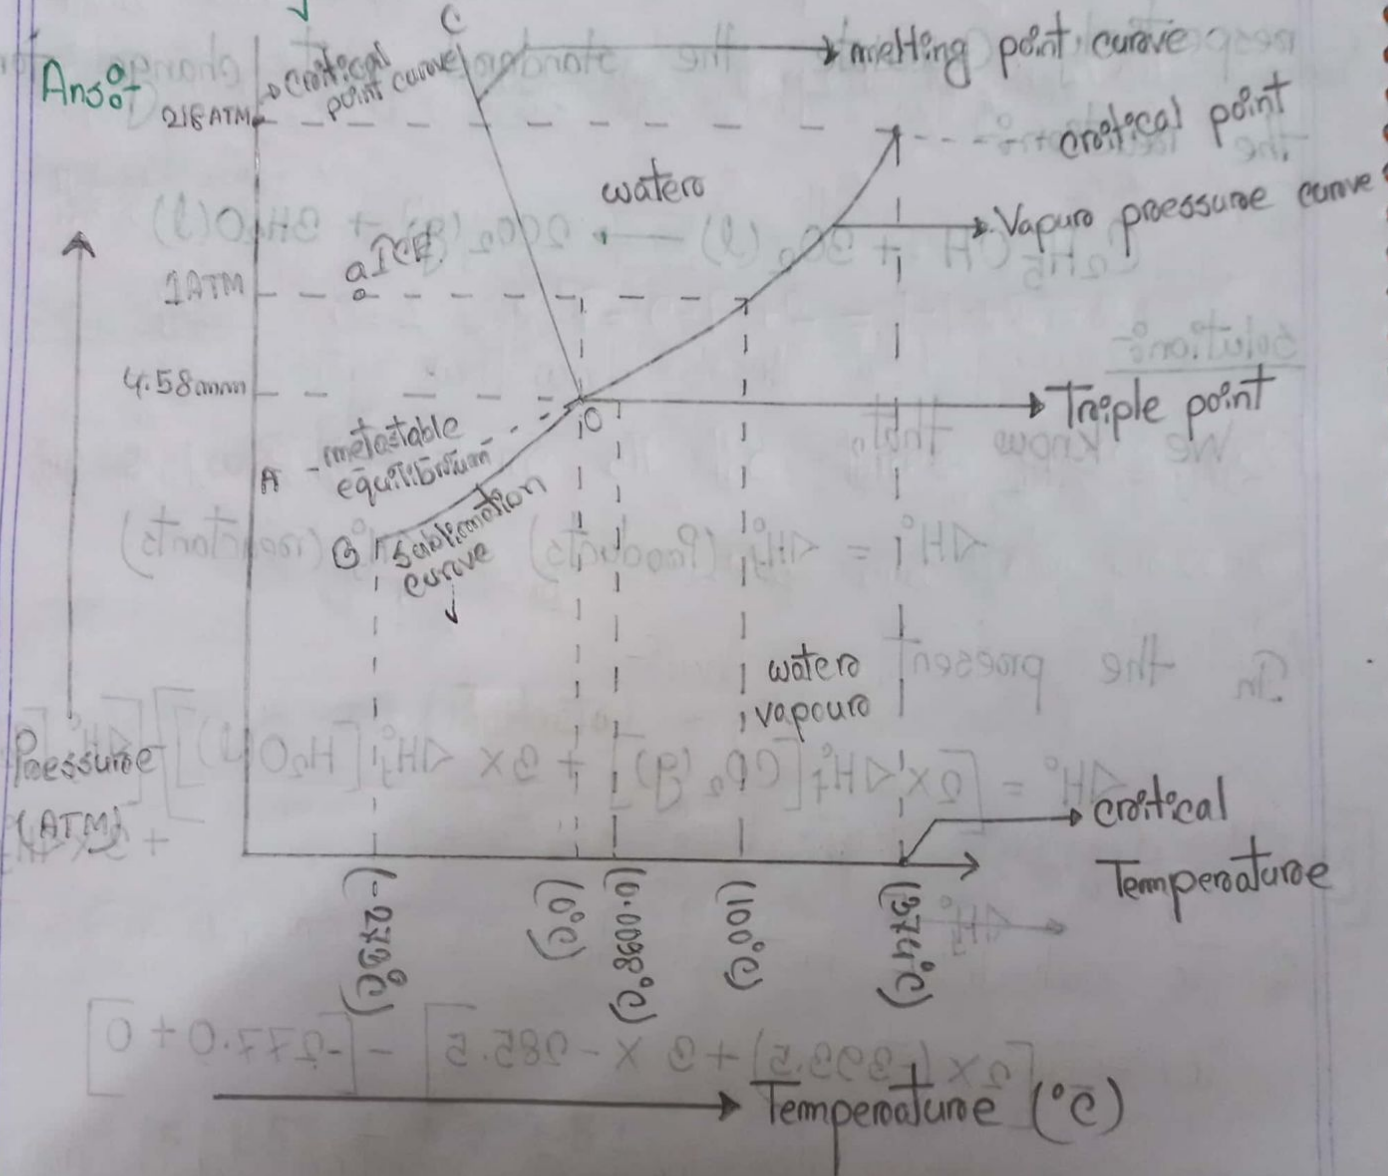 Ans:-
C
critical
point curve
melting point curve
218 ATM
critical point
water
Vapur pressure curve
ICE
a
1ATM
4.58mm
Triple point
O
metastable
equilibrium
A
B
sublimation
curve
water
vapour
Pressure
(ATM)
critical
Temperature
(-273°C)
(0°C)
(0.0098°C)
(100°C)
(374°C)
Temperature (°C)